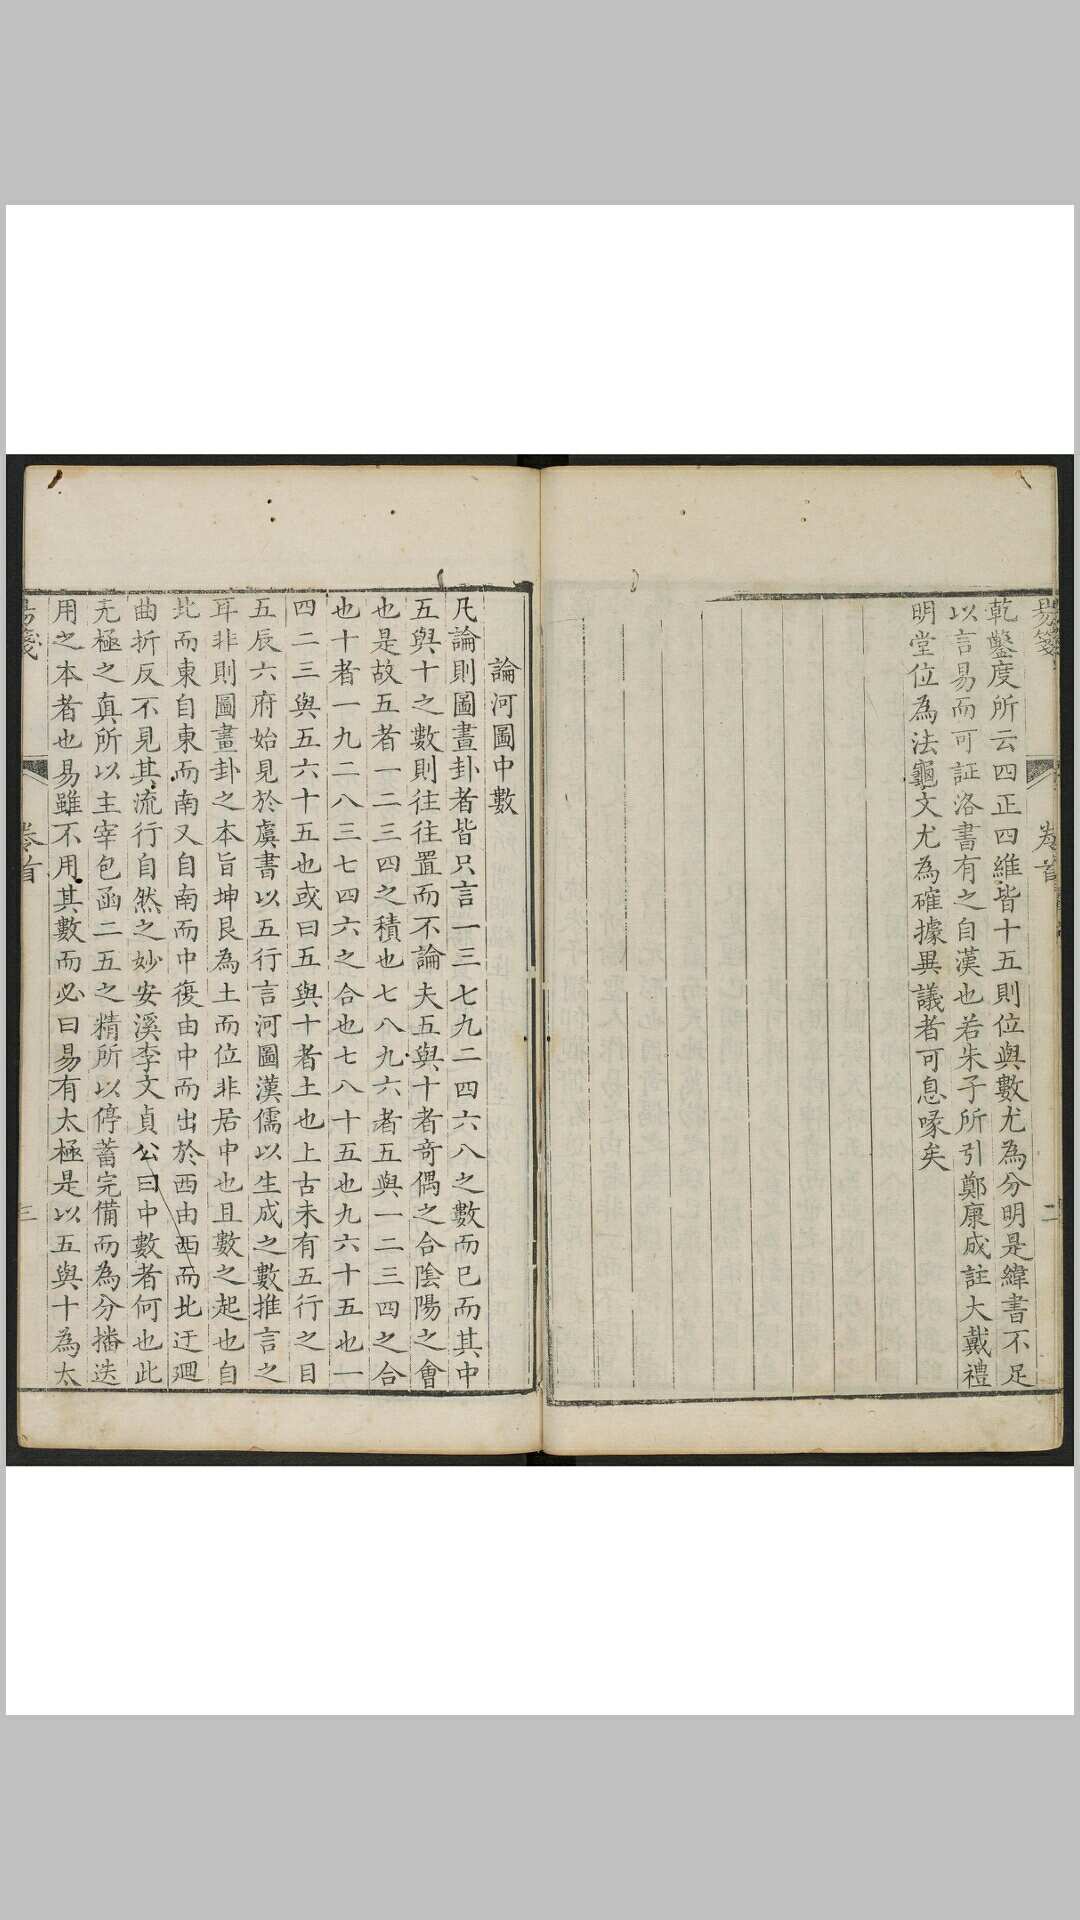 易箋
卷首
二
乾鑿度所云四正四維皆十五則位與數尤為分明是緯書不足
以言易而可証洛書有之自漢也若朱子所引鄭康成註大戴禮
明堂位為法龜文尤為確據異議者可息喙矣
論河圖中數
凡論則圖畫卦者皆只言一三七九二四六八之數而已而其中
五與十之數則往往置而不論夫五與十者奇偶之合陰陽之會
也是故五者一二三四之積也七八九六者五與一二三四之合
也十者一九二八三七四六之合也七八十五也九六十五也一
四二三與五六十五也或曰五與十者土也上古未有五行之目
五辰六府始見於虞書以五行言河圖漢儒以生成之數推言之
耳非則圖畫卦之本旨坤艮為土而位非居中也且數之起也自
北而東自東而南又自南而中復由中而出於西由西而北迂迴
曲折反不見其流行自然之妙安溪李文貞公曰中數者何也此
无極之真所以主宰包函二五之精所以停蓄完備而為分播迭
用之本者也易雖不用其數而必曰易有太極是以五與十為太
易箋
卷首
三